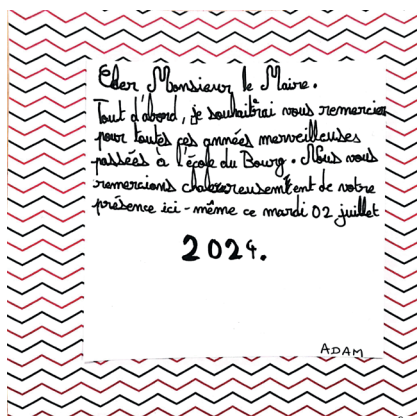 Cher Monsieur le Maire.
Tout d'abord, je souhaitrai vous remercier
pour toutes ces années merveilleuses
passées à l'école du Bourg. Nous vous
remercions chaleureusement de votre
présence ici-même ce mardi 02 juillet
2024.
ADAM